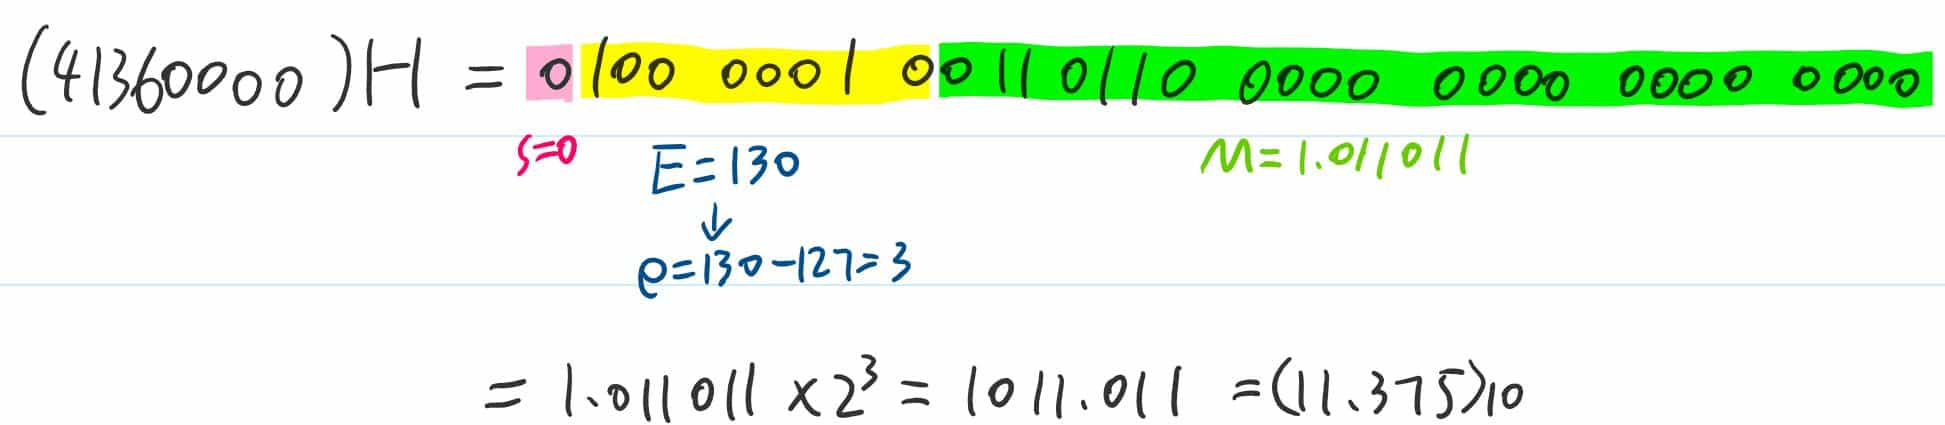 (41360000)H = 0100 0001 0011 0110 0000 0000 0000 0000
S=0 E=130 M=1.011011
↓
e=130-127=3
= 1.011011 × 2³ = 1011.011 =(11.375)10